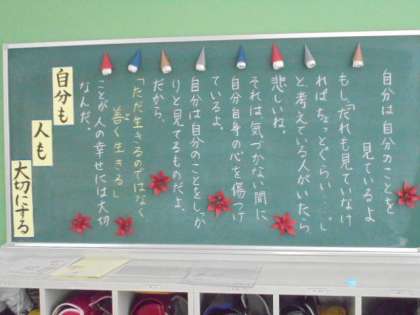 自分は自分のことを
見ているよ
もし「だれも見ていなけ
ればちょっとぐらい…」
と考えている人がいたら
悲しいね。
それは気づかない間に
自分自身の心を傷つけ
ているよ。
自分は自分のことをしっか
りと見てるものだよ。
だから、
「ただ生きるのではなく
善く生きる」
ことが人の幸せには大切
なんだ。
自分も
人も
大切にする